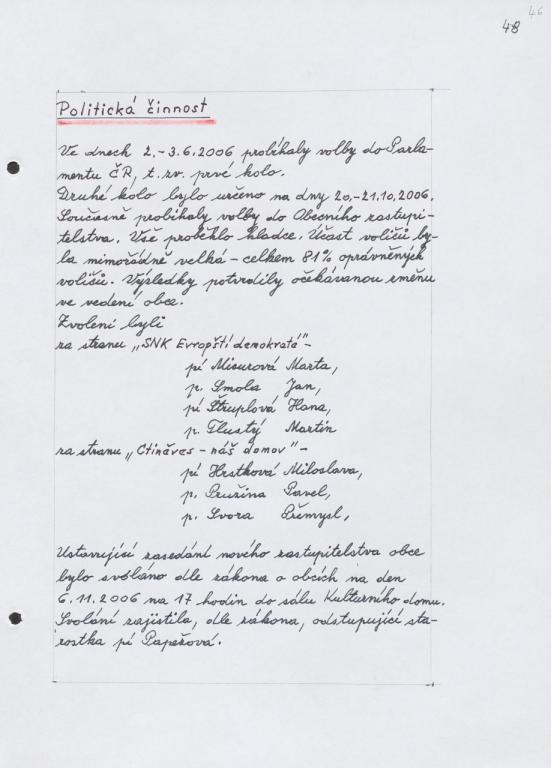 46
48
Politická činnost
Ve dnech 2.-3.6.2006 probíhaly volby do Parla-
mentu ČR, t. zv. prvé kolo.
Druhé kolo bylo určeno na dny 20.-21.10.2006.
Současně probíhaly volby do Obecního zastupi-
telstva. Vše proběhlo hladce. Účast voličů by-
la mimořádně velká – celkem 81% oprávněných
voličů. Výsledky potvrdily očekávanou změnu
ve vedení obce.
Zvoleni byli
za stranu „SNK Evropští demokraté" –
pí Misurová Marta,
p. Smola Jan,
pí Štruplová Hana,
p. Tlustý Martin
za stranu „Ctiněves – náš domov" –
pí Hrstková Miloslava,
p. Pružina Pavel,
p. Svora Přemysl,
Ustavující zasedání nového zastupitelstva obce
bylo svoláno dle zákona o obcích na den
6.11.2006 na 17 hodin do sálu Kulturního domu.
Svolání zajistila, dle zákona, odstupující sta-
rostka pí Papežová.